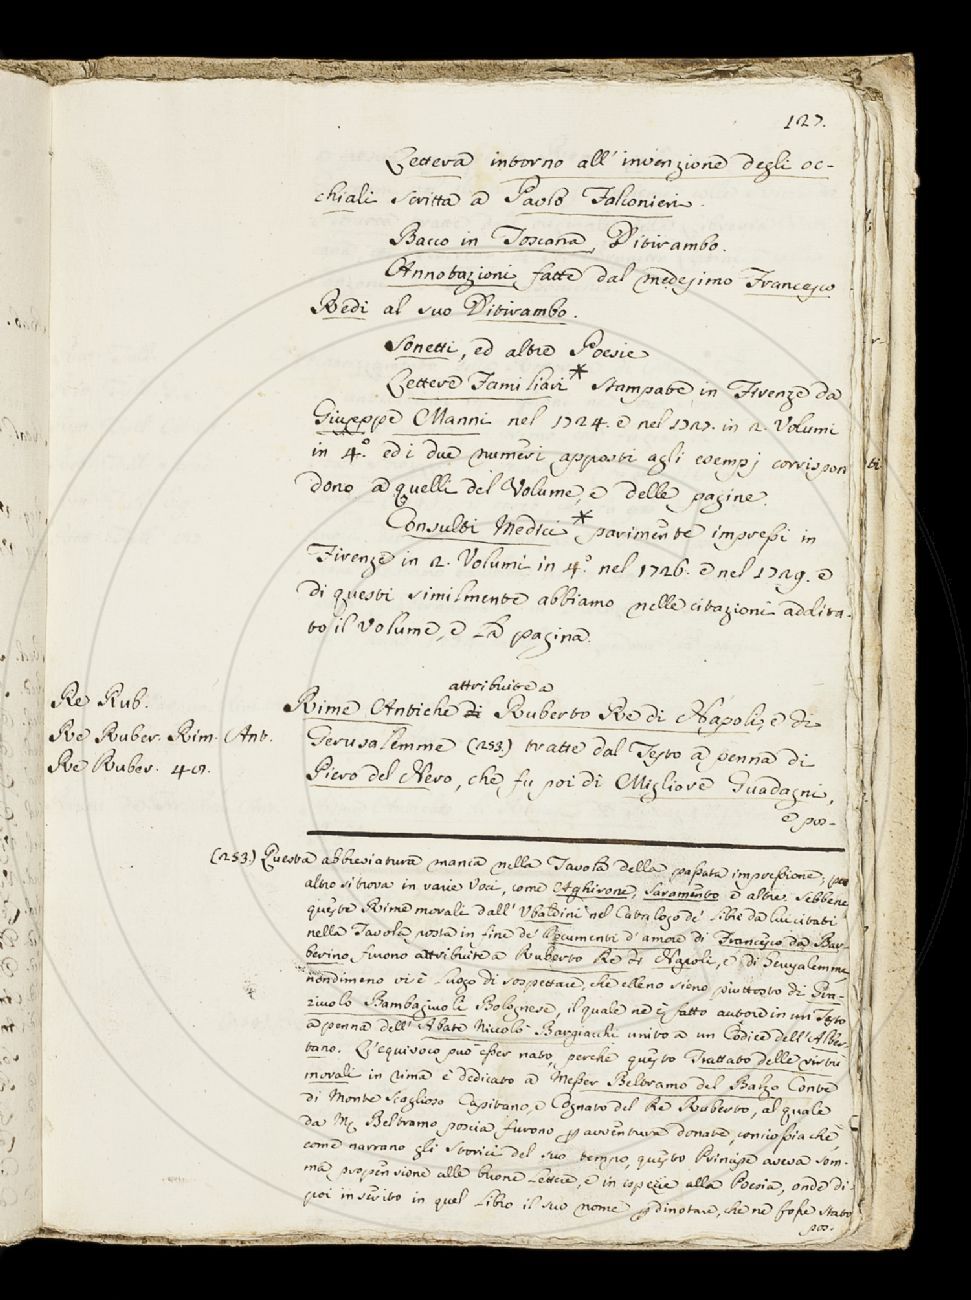 127.
Lettera intorno all' invenzione degli oc-
chiali scritta a Paolo Falconieri.
Bacco in Toscana, Ditirambo.
Annotazioni fatte dal medesimo Francesco
Redi al suo Ditirambo.
Sonetti, ed altre Poesie
Lettere Familiari* stampate in Firenze da
Giuseppe Manni nel 1724. e nel 1727. in 2. Volumi
in 4.° ed i due numeri apposti agli esempj corrispon
dono a quelli del Volume, e delle pagine.
Consulti Medici* parimente impressi in
Firenze in 2. Volumi in 4.° nel 1726. e nel 1729. e
di questi similmente abbiamo nelle citazioni addita-
to il Volume, e la pagina.
Re Rub.
Re Ruber. Rim. Ant.
Re Ruber. 40.
attribuite a
Rime Antiche di Ruberto Re di Napoli, e di
Gerusalemme (253) tratte dal Testo a penna di
Piero del Nero, che fu poi di Migliore Guadagni,
e po-
(253.) Questa abbreviatura manca nella Tavola della passata impressione; per
altro si trova in varie Voci, come Aghirone, Saramento e altre. Sebbene
queste Rime morali dall' Ubaldini nel Catalogo de' libri da lui citati
nella Tavola posta in fine de' Documenti d' amore di Francesco da Bar-
berino, furono attribuite a Ruberto Re di Napoli, e di Gerusalemme,
nondimeno vi è luogo di sospettare, che elleno sieno piuttosto di Gra-
ziuolo Bambagiuoli Bolognese, il quale ne è fatto autore in un Testo
a penna dell' Abate Niccolò Bargiacchi unito a un Codice dell' Alber-
tano. L' equivoco può esser nato, perchè questo Trattato delle virtù
morali in rima è dedicato a Messer Beltramo del Balzo Conte
di Monte Scaglioso Capitano, e Cognato del Re Ruberto, al quale
da M. Beltramo poscia furono p avventura donate, conciossiachè,
come narrano gli Storici del suo tempo, questo Principe aveva som-
ma propensione alle buone Lettere, e in ispezie alla Poesia, onde di
poi inscritto in quel Libro il suo nome p dinotare, che ne fosse stato
pos-